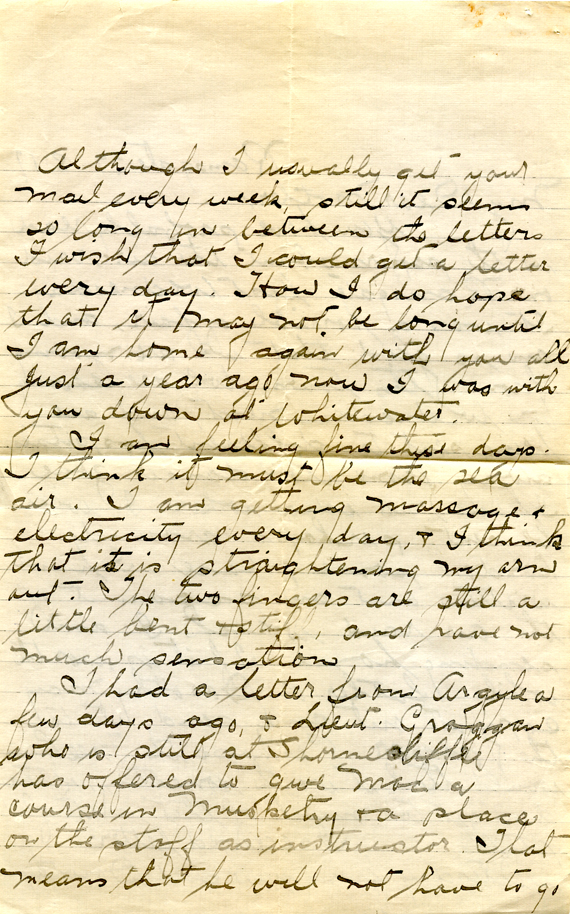 Although I usually get your
mail every week, still it seems
so long in between the letters
I wish that I could get a letter
every day. How I do hope
that it may not be long until
I am home again with you all
Just a year ago now I was with
you down at Whitewater.
I am feeling fine these days.
I think it must be the sea
air. I am getting massage &
electricity every day, & I think
that it is straightening my arm
out. The two fingers are still a
little bent & stif, and have not
much sensation
I had a letter from Argyle a
few days ago, & Lieut. Groggan
who is still at Shornecliffe
has offered to give Mac a
course in Musketry & a place
on the staff as instructor. That
means that he will not have to go